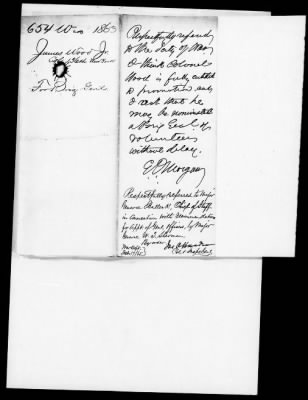 654 W 1863
James Wood Jr.
Col 136th New York
For Brig Genl
Respectfully referred
to the Secty of War
I think Colonel
Wood is fully entitled
to promotion and
I ask that he
may be nominated
a Brig Genl of
Volunteers
without delay.
E D Morgan
Respectfully referred to Major
General Halleck, Chief of Staff
in connection with recommendation
for appt of Genl Officers, by Major
Genl W. T. Sherman
War Dept